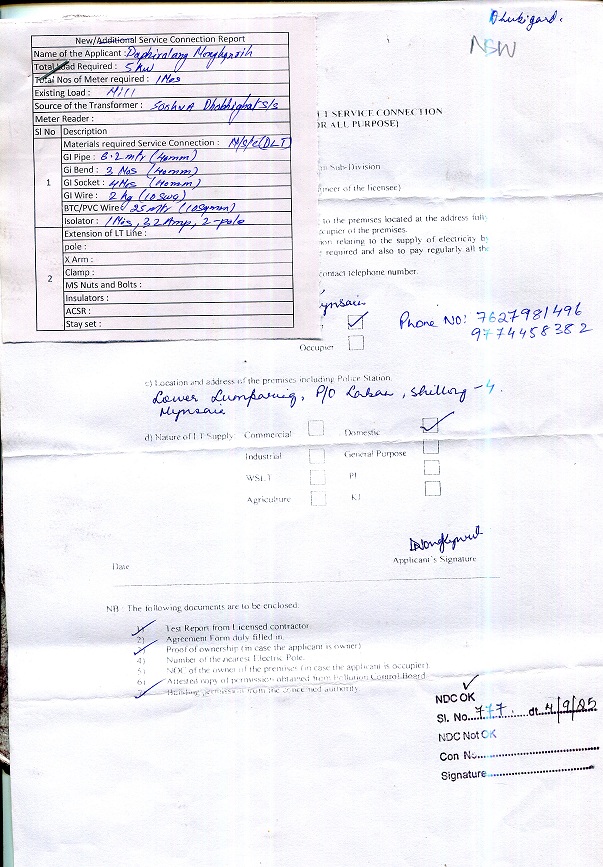 Dhukigard.
NSW
New/Additional Service Connection Report
Name of the Applicant : Daphiralang Nongkynrih
Total Load Required : 5 KW
Total Nos of Meter required : 1 Nos
Existing Load : Mill
Source of the Transformer : Dhobhighat S/s
Meter Reader :
Sl No Description
1
Materials required Service Connection : (DLT)
GI Pipe : 6.2 mtr (40mm)
GI Bend : 2 Nos (40mm)
GI Socket : 4 Nos (40mm)
GI Wire : 2 kg (10 swg)
BTC/PVC Wire : 25 mtr (10 sqmm)
Isolator : 1 Nos, 32 Amp, 2-pole
2
Extension of LT Line :
pole :
X Arm :
Clamp :
MS Nuts and Bolts :
Insulators :
ACSR :
Stay set :
LT SERVICE CONNECTION
OR ALL PURPOSE)
Sub-Division
neer of the licensee)
to the premises located at the address fully
ccupier of the premises.
on relating to the supply of electricity by
required and also to pay regularly all the
contact telephone number.
ynsain
Phone NO: 7627981496
9774458382
Occupier
c) Location and address of the premises including Police Station.
Lower Lumparing, P/O Laban, Shillong - 4.
Mynsain
d) Nature of LT Supply Commercial Domestic
Industrial General Purpose
WSLT PL
Agriculture KJ
Applicant's Signature
Date
NB : The following documents are to be enclosed.
1) Test Report from Licensed contractor.
2) Agreement Form duly filled in.
3) Proof of ownership (in case the applicant is owner)
4) Number of the nearest Electric Pole.
5) NOC of the owner of the premises (in case the applicant is occupier).
6) Attested copy of permission obtained from Pollution Control Board.
7) Building permission from the concerned authority.
NDC OK
Sl. No...777...dt. 4/9/25
NDC Not OK
Con No.
Signature